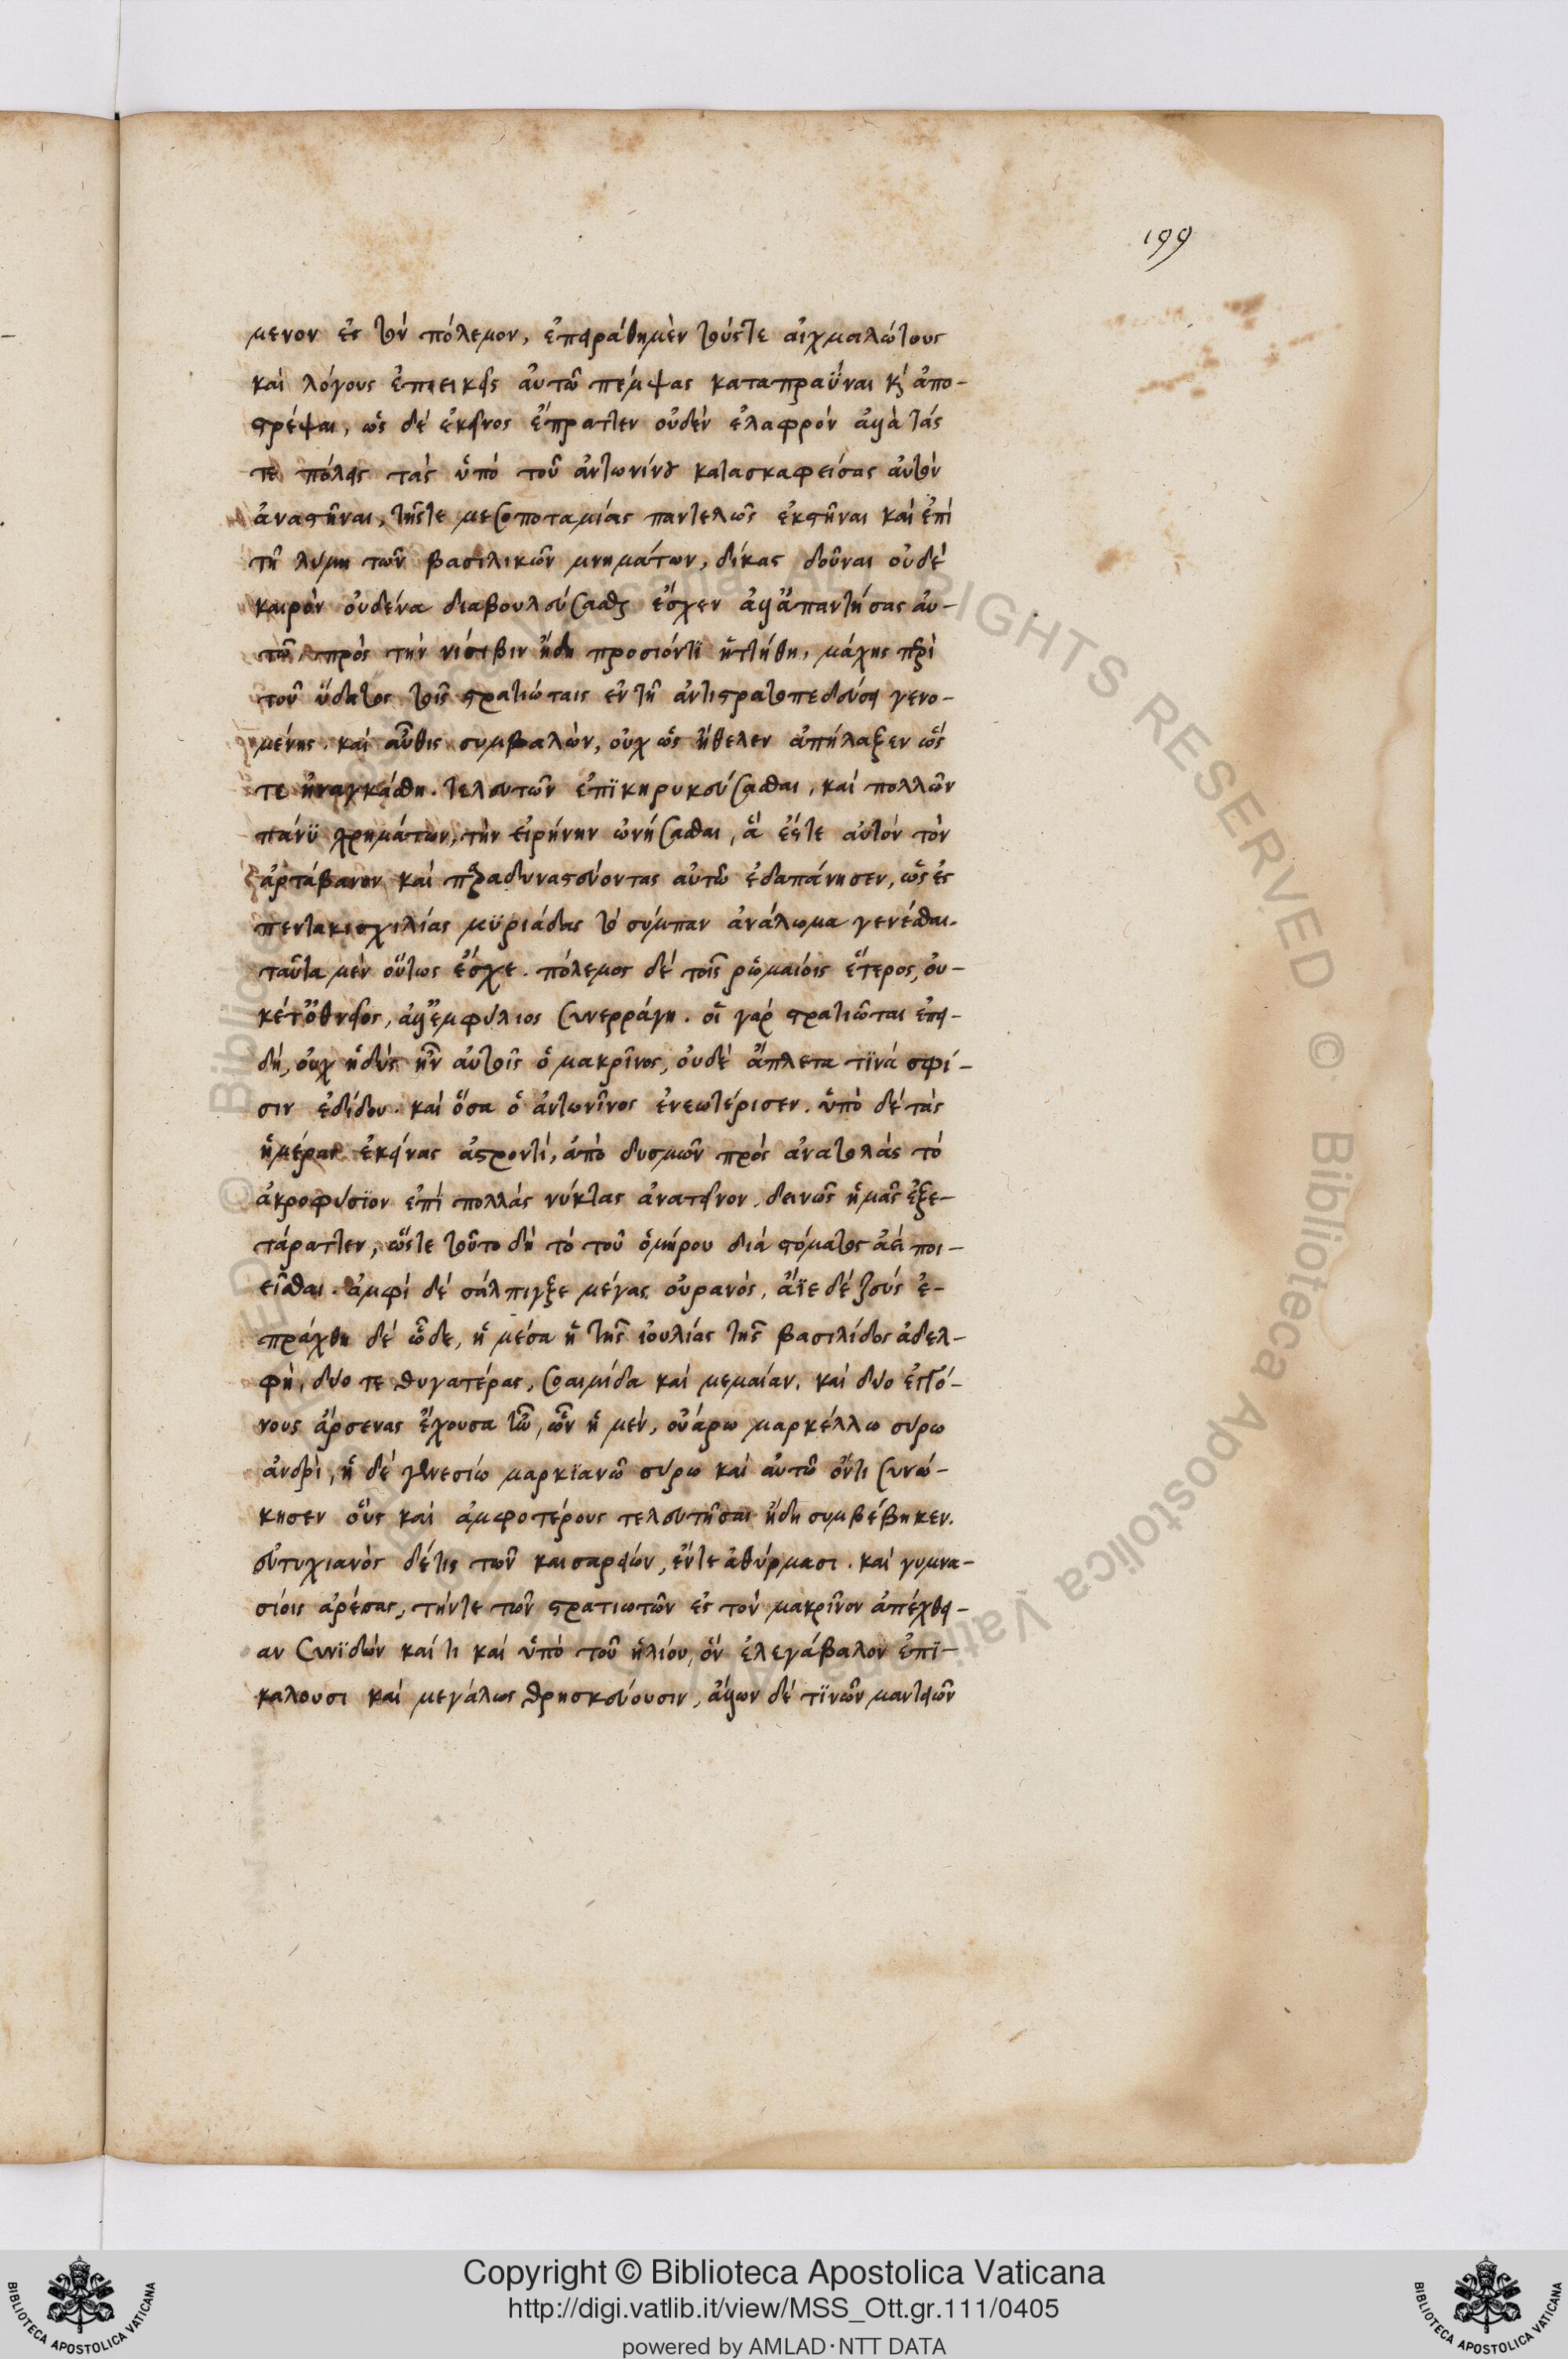 199
μενον ἐς τὸν πόλεμον, ἐπειράθημὲν τούςτε αἰχμαλώτους
καὶ λόγους ἐπιεικεῖς ἀυτῶ πέμψας καταπραΰναι κ̀ ἀπο-
στρέψαι, ὡς δὲ ἐκεῖνος ἔπραττεν οὐδὲν ἐλαφρὸν ἀλλὰ τάς
τε πόλεις τὰς ὑπὸ τοῦ ἀντωνίνου κατασκαφείσας ἀυτὸν
ἀναστῆναι, τῆςτε μεσοποταμίας παντελῶς ἐκστῆναι καὶ ἐπὶ
τῆ λύμη τῶν βασιλικῶν μνημάτων, δίκας δοῦναι οὐδὲ
καιρὸν οὐδένα διαβουλεύσασθαι ἔσχεν ἀλλ' ἀπαντήσας ἀυ-
τῶ, πρὸς τὴν νίσιβιν ἤδη προσιόντϊ ἡττήθη, μάχης περὶ
τοῦ ὕδατος τοῖς στρατιώταις ἐν τῆ ἀντιστρατοπεδεύσει γενο-
μένης. καὶ αὖθις συμβαλὼν, οὐχ ὡς ἤθελεν ἀπήλαξεν ὥς
τε ἠναγκάσθη. τελευτῶν ἐπϊκηρυκεύσασθαι, καὶ πολλῶν
πάνϋ χρημάτων, τὴν εἰρήνην ὠνήσασθαι, ἃ ἔςτε αὐτὸν τὸν
ἀρτάβανον καὶ παραδυναστεύοντας αὐτῶ ἐδαπάνησεν, ὡς ἐς
πεντακισχιλίας μϋριάδας τὸ σύμπαν ἀνάλωμα γενέσθαι.
ταῦτα μὲν οὕτως ἔσχε. πόλεμος δὲ τοῖς ῥωμαίοις ἕτερος, οὐ-
κέτ' ὀθνεῖος, ἀλλ' ἐμφύλιος συνερράγη. οἱ γὰρ στρατιῶται ἐπει-
δὴ, οὐχ ἡδὺς ἦν αὐτοῖς ὁ μακρῖνος, οὐδὲ ἄπλετα τϊνὰ σφί-
σιν ἐδίδου. καὶ ὅσα ὁ ἀντωνῖνος ἐνεωτέρισεν. ὑπὸ δὲ τὰς
ἡμέρας ἐκείνας ἀστροντὶ, ἀπὸ δυσμῶν πρὸς ἀνατολὰς τὸ
ἀκροφύσϊον ἐπὶ πολλὰς νύκτας ἀνατεῖνον. δεινῶς ἡμᾶς ἐξε-
τάραττεν, ὥςτε τοῦτο δὴ τὸ τοῦ ὁμήρου διὰ στόματος ἀεὶ ποι-
εῖσθαι. ἀμφὶ δὲ σάλπιγξε μέγας οὐρανὸς, ἄϊε δὲ ζεύς ἐ-
πράχθη δὲ ὧδε, ἡ μέσα ἡ τῆς ἰουλίας τῆς βασιλίδος ἀδελ-
φὴ, δύο τε θυγατέρας, σοαιμίδα καὶ μεμαίαν. καὶ δύο ἐγγό-
νους ἄρσενας ἔχουσα τῶ, ὧν ἡ μὲν, οὐάρω μαρκέλλω σύρω
ἀνδρὶ, ἡ δὲ γεννεσίω μαρκϊανῶ σύρω καὶ αὐτῶ ὄντι συνώ-
κησεν οὓς καὶ ἀμφοτέρους τελευτῆσαι ἤδη συμβέβηκεν.
εὐτυχιανὸς δέτις τῶν καισαρείων, ἔντε ἀθύρμασι. καὶ γυμνα-
σίοις ἀρέσας, τήντε τῶν στρατιωτῶν ἐς τὸν μακρῖνον ἀπέχθει-
αν συνϊδὼν καί τι καὶ ὑπὸ τοῦ ἡλίου, ὃν ἐλεγάβαλον ἐπϊ-
καλουσι καὶ μεγάλως θρησκεύουσιν, ἄλλων δὲ τϊνῶν μαντειῶν
© Biblioteca Apostolica Vaticana ALL RIGHTS RESERVED
Copyright © Biblioteca Apostolica Vaticana
http://digi.vatlib.it/view/MSS_Ott.gr.111/0405
powered by AMLAD·NTT DATA
BIBLIOTECA APOSTOLICA VATICANA
BIBLIOTECA APOSTOLICA VATICANA